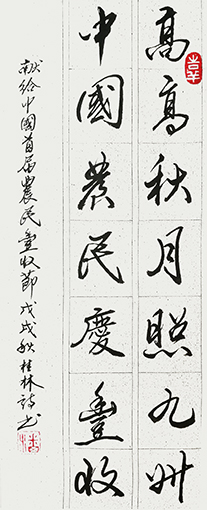 高高秋月照九州
中國農民慶豐收
献给中國首届農民豐收節戊戌秋桂林詩书